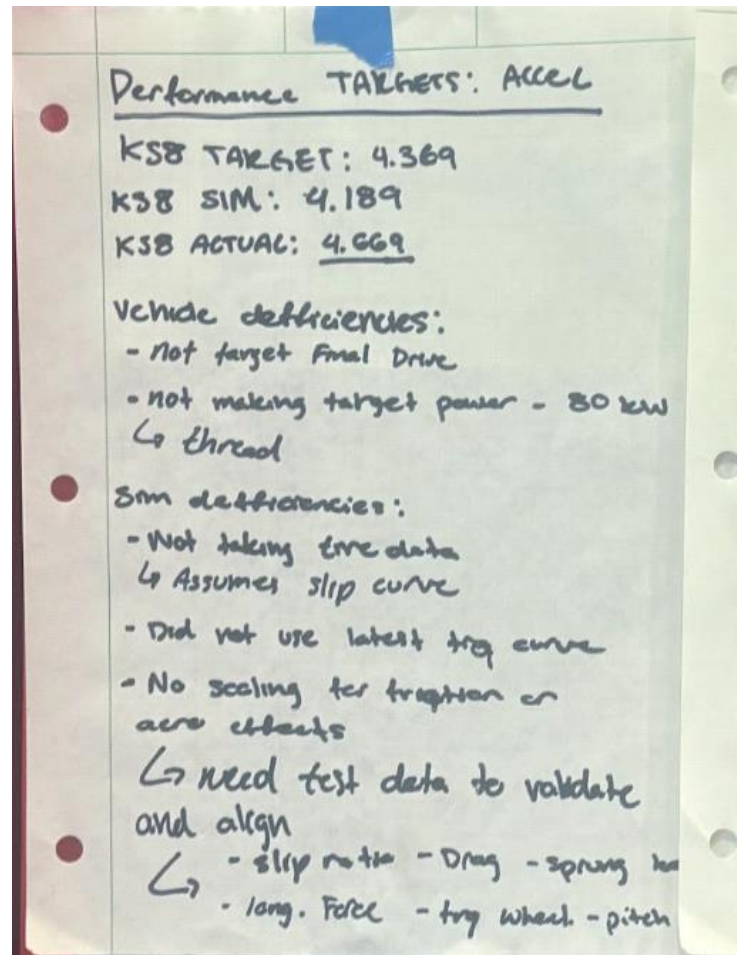 Performance TARGETS: Accel
KS8 TARGET: 4.369
KS8 SIM: 4.189
KS8 ACTUAL: 4.669
Vehicle defficiencies:
- Not target Final Drive
- not making target power - 80 kW
↳ thread
Sim defficiencies:
- Not taking tire data
↳ Assumes slip curve
- Did not use latest trq curve
- No scaling for friction or
aero effects
↳ need test data to validate
and align
↳ - slip ratio - Drag - sprung
- long. Force - trq wheel - pitch